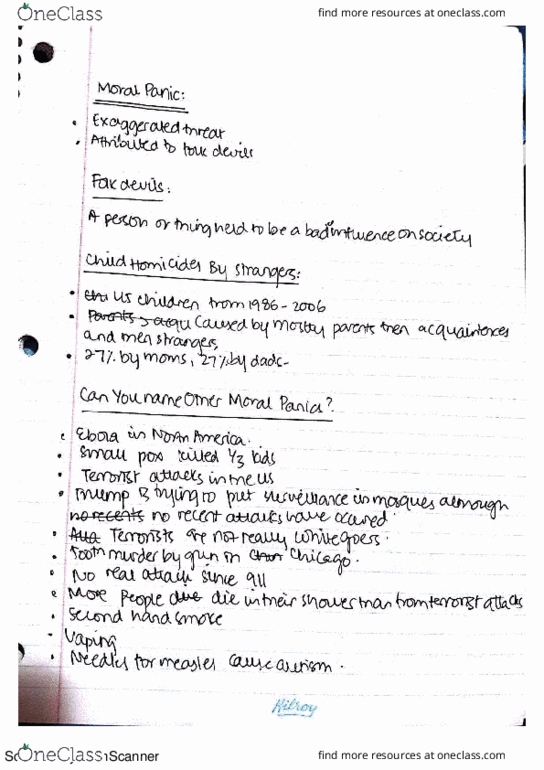 OneClass
find more resources at oneclass.com
Moral Panic:
• Exaggerated threat
• Attributed to folk devils
Folk devils:
A person or thing held to be a bad influence on society
Child Homicides By Strangers:
• US children from 1986-2006
• Parents Caused by mostly parents then acquaintences
and then strangers,
• 27% by moms, 27% by dads-
Can You name Other Moral Panics?
• Ebora in North America.
• Small pox killed 1/3 kids
• Terrorist attacks in the US
• Trump is trying to put surveillance in mosques although
no recents no recent attacks have occured.
• Terrorists are not really white goers.
• 500th murder by gun in Chicago.
• No real attack since 911
• More people due die in their shower than from terrorist attacks
• Second hand smoke
- Vaping
• Needles for measles cause autism.
Hilroy
OneClass
Scanner
find more resources at oneclass.com